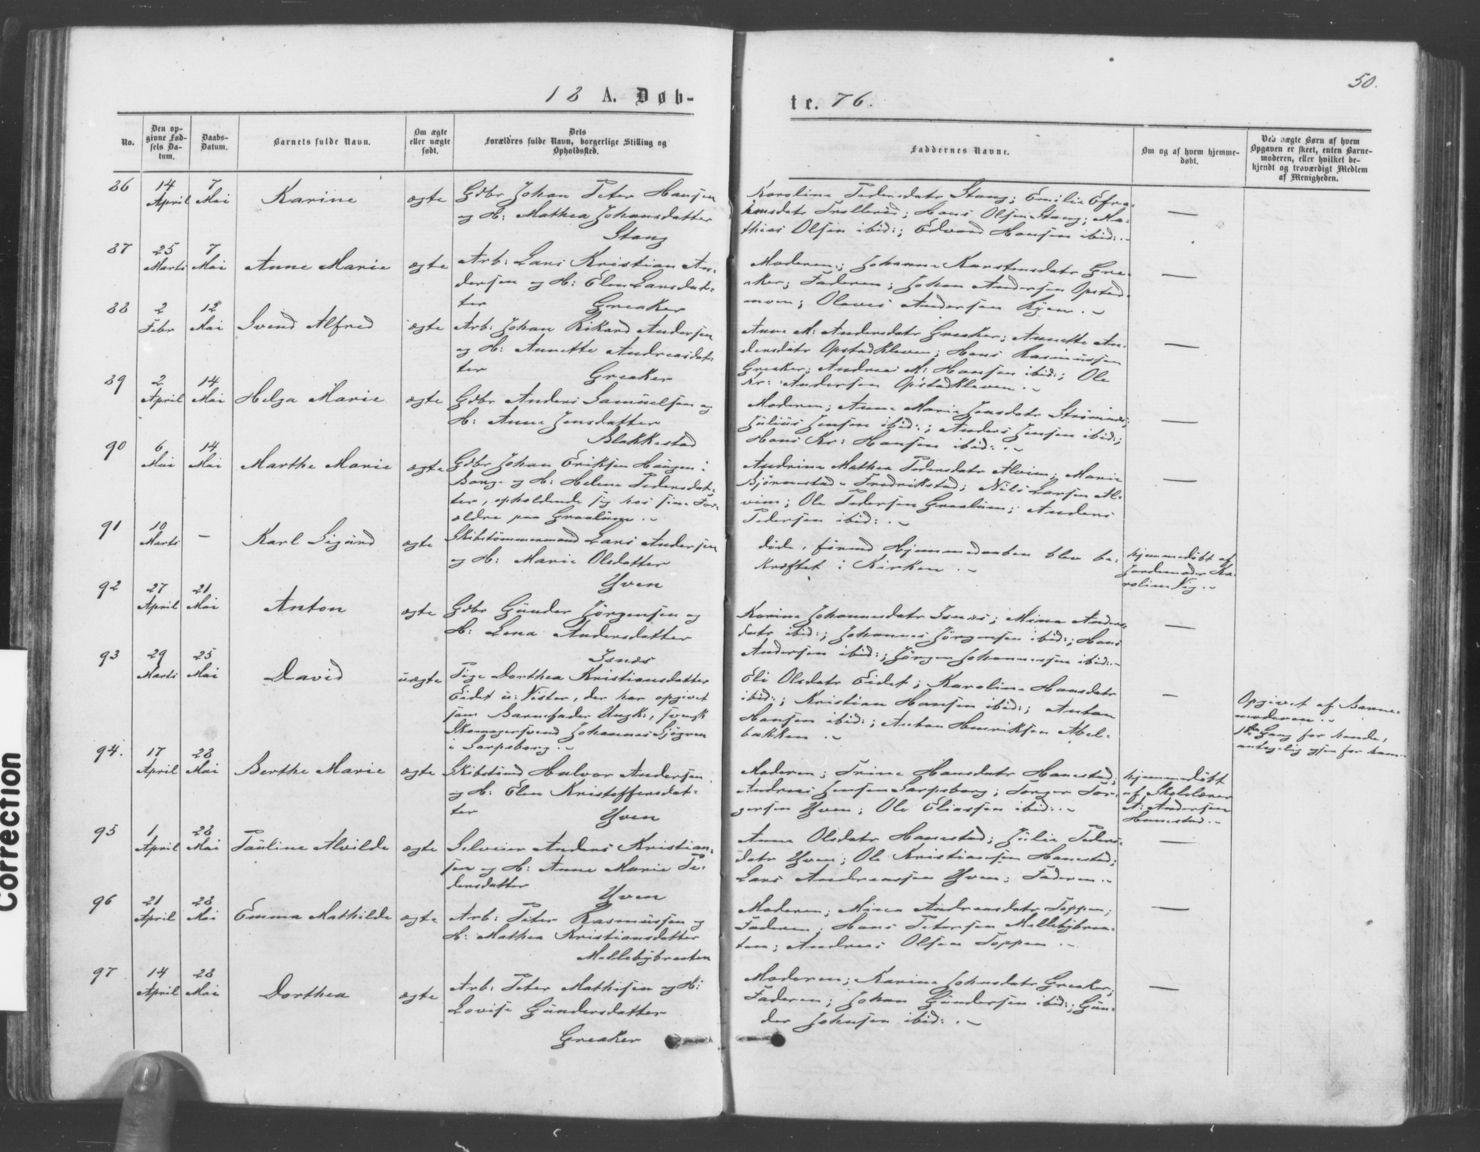 50.
18 A. Døb-
te. 76.
No.
Den op-
givne Fød-
sels Da-
tum.
Daabs-
Datum.
Barnets fulde Navn.
Om ægte
eller uægte
født.
Dets
Forældres fulde Navn, borgerlige Stilling og
Opholdssted.
Faddernes Navne.
Om og af hvem hjemme-
døbt.
Ved uægte Børn af hvem
Opgaven er skeet, enten Barne-
moderen, eller hvilket be-
kjendt og troværdigt Medlem
af Menigheden.
86
14
April
7
Mai
Karine
ægte
Gdbr Johan Peter Hansen
og H: Mathea Johansdatter
Stang
Karoline Pedersdatr Stang; Emilie
Hans Olsen Stang; Ma-
thias Olsen ibid:; Edvard Hansen ibid:
—
87
25
Marts
7
Mai
Anne Marie
ægte
Arb: Lars Kristian An-
dersen og H: Elen Larsdat-
ter
Greaker
Moderen; Johanne Karstensdatr Grea-
ker; Faderen; Johan Andersen Opstad-
moen; Olaves Andersen
—
88
2
Febr
12
Mai
Svend Alfred
ægte
Arb: Johan Rikard Andersen
og H: Annette Andreasdat-
ter
Greaker
Anne M: Andersdatr Greaker; Annette An-
dersdatr Opstadkleven; Hans Rasmussen
Greaker; Andreas M: Hansen ibid:; Ole
Kr: Andersen Opstadkleven.
—
89
2
April
14
Mai
Helga Marie
ægte
Gdbr Anders Samuelsen og
H: Anne Jensdatter
Blekkestad
Moderen; Anne Marie Jensdatr
Julius Jensen ibid:; Anders Jensen ibid:;
Hans Kr: Hansen ibid:
—
90
6
Mai
14
Mai
Marthe Marie
ægte
Gdbr Johan Eriksen Haugen i
Borge og H: Helene Pedersdat-
ter, opholdende sig hos sine For-
ældre paa Greaaker
Andrine Mathea Pedersdatr Alvim; Marie
Bjørnstad Fredrikstad; Nils Larsen Al-
vim; Ole Pedersen; Anders
Pedersen ibid:
—
91
10
Marts
—
Karl Sigurd
ægte
Skibstømmermand Lars Andersen
og H: Marie Olsdatter
Yven
døde, førend Hjemmedaaben blev be-
kræftet i Kirken.
hjemmedøbt af
Jordemoder Ka-
roline
92
27
April
21
Mai
Anton
ægte
Gdbr Gunder Jørgensen og
H: Lena Andersdatter
Isnæs
Karine Johannesdatr Isnæs; Mina Anders-
datr ibid:; Johannes Jørgensen ibid:; Hans
Andersen ibid:; Jørgen Johannessen ibid:
—
93
29
Marts
25
Mai
David
uægte
Pige Dorthea Kristiansdatter
Eidet u: Vister, der har opgivet
som Barnefader Ungk:, svensk
Skomagersvend Johannes Sjøgren
i Sarpsborg.
Eli Olsdatr Eidet; Karoline Hansdatr
ibid:; Kristian Hansen ibid:; Anton
Hansen ibid:; Anton Henriksen Abel-
bakken.
—
Opgivet af Barne-
moderen.
1ste Gang for hende,
antagelig ogsaa for ham.
94.
17
April
28
Mai
Berthe Marie
ægte
Skibstmd Halvor Andersen
og H: Elen Kristoffersdat-
ter
Yven
Moderen; Trine Hansdatr Hanestad;
Andreas Jensen Sarpsborg; Torger Tor-
gersen Yven; Ole Eliassen ibid:
hjemmedøbt
af Skolelærer
A: Andersen
Hanestad.
95
1
April
28
Mai
Pauline Alvilde
ægte
Selveier Anders Kristian-
sen og H: Anne Marie Pe-
dersdatter
Yven
Anne Olsdatr Hanestad; Julie Peders-
datr Yven; Ole Kristiansen Hanestad;
Lars Andreassen Yven; Faderen.
—
96
21
April
28
Mai
Emma Mathilde
ægte
Arb: Peter Rasmussen og
H: Mathea Kristiansdatter
Mellebybraaten
Moderen; Maren Andreasdatr Toppen;
Faderen; Hans Petersen Mellebybraa-
ten; Andreas Olsen Toppen
—
97
14
April
28
Mai
Dorthea
ægte
Arb: Peter Mathisen og H:
Lovise Gundersdatter
Greaker
Moderen; Karine Johnsdatr Greaker;
Faderen; Johan Gundersen ibid:; Gun-
der Johnsen ibid:
—
Correction